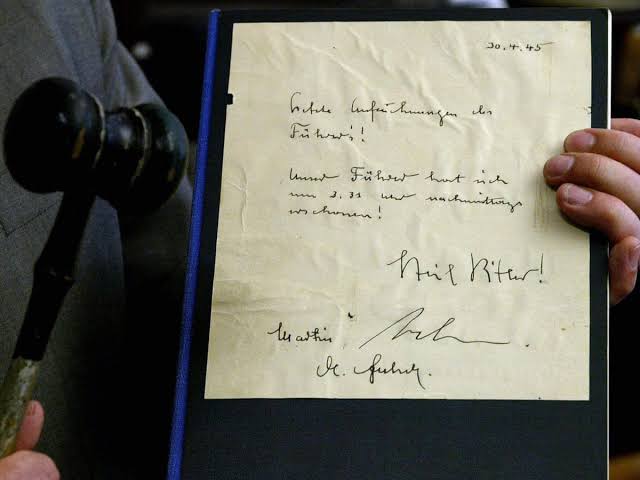 30.4.45
Letzte Aufzeichnungen des
Führers!
Unser Führer hat sich
um 3.31 Uhr nachmittags
erschossen!
Heil Hitler!
Martin